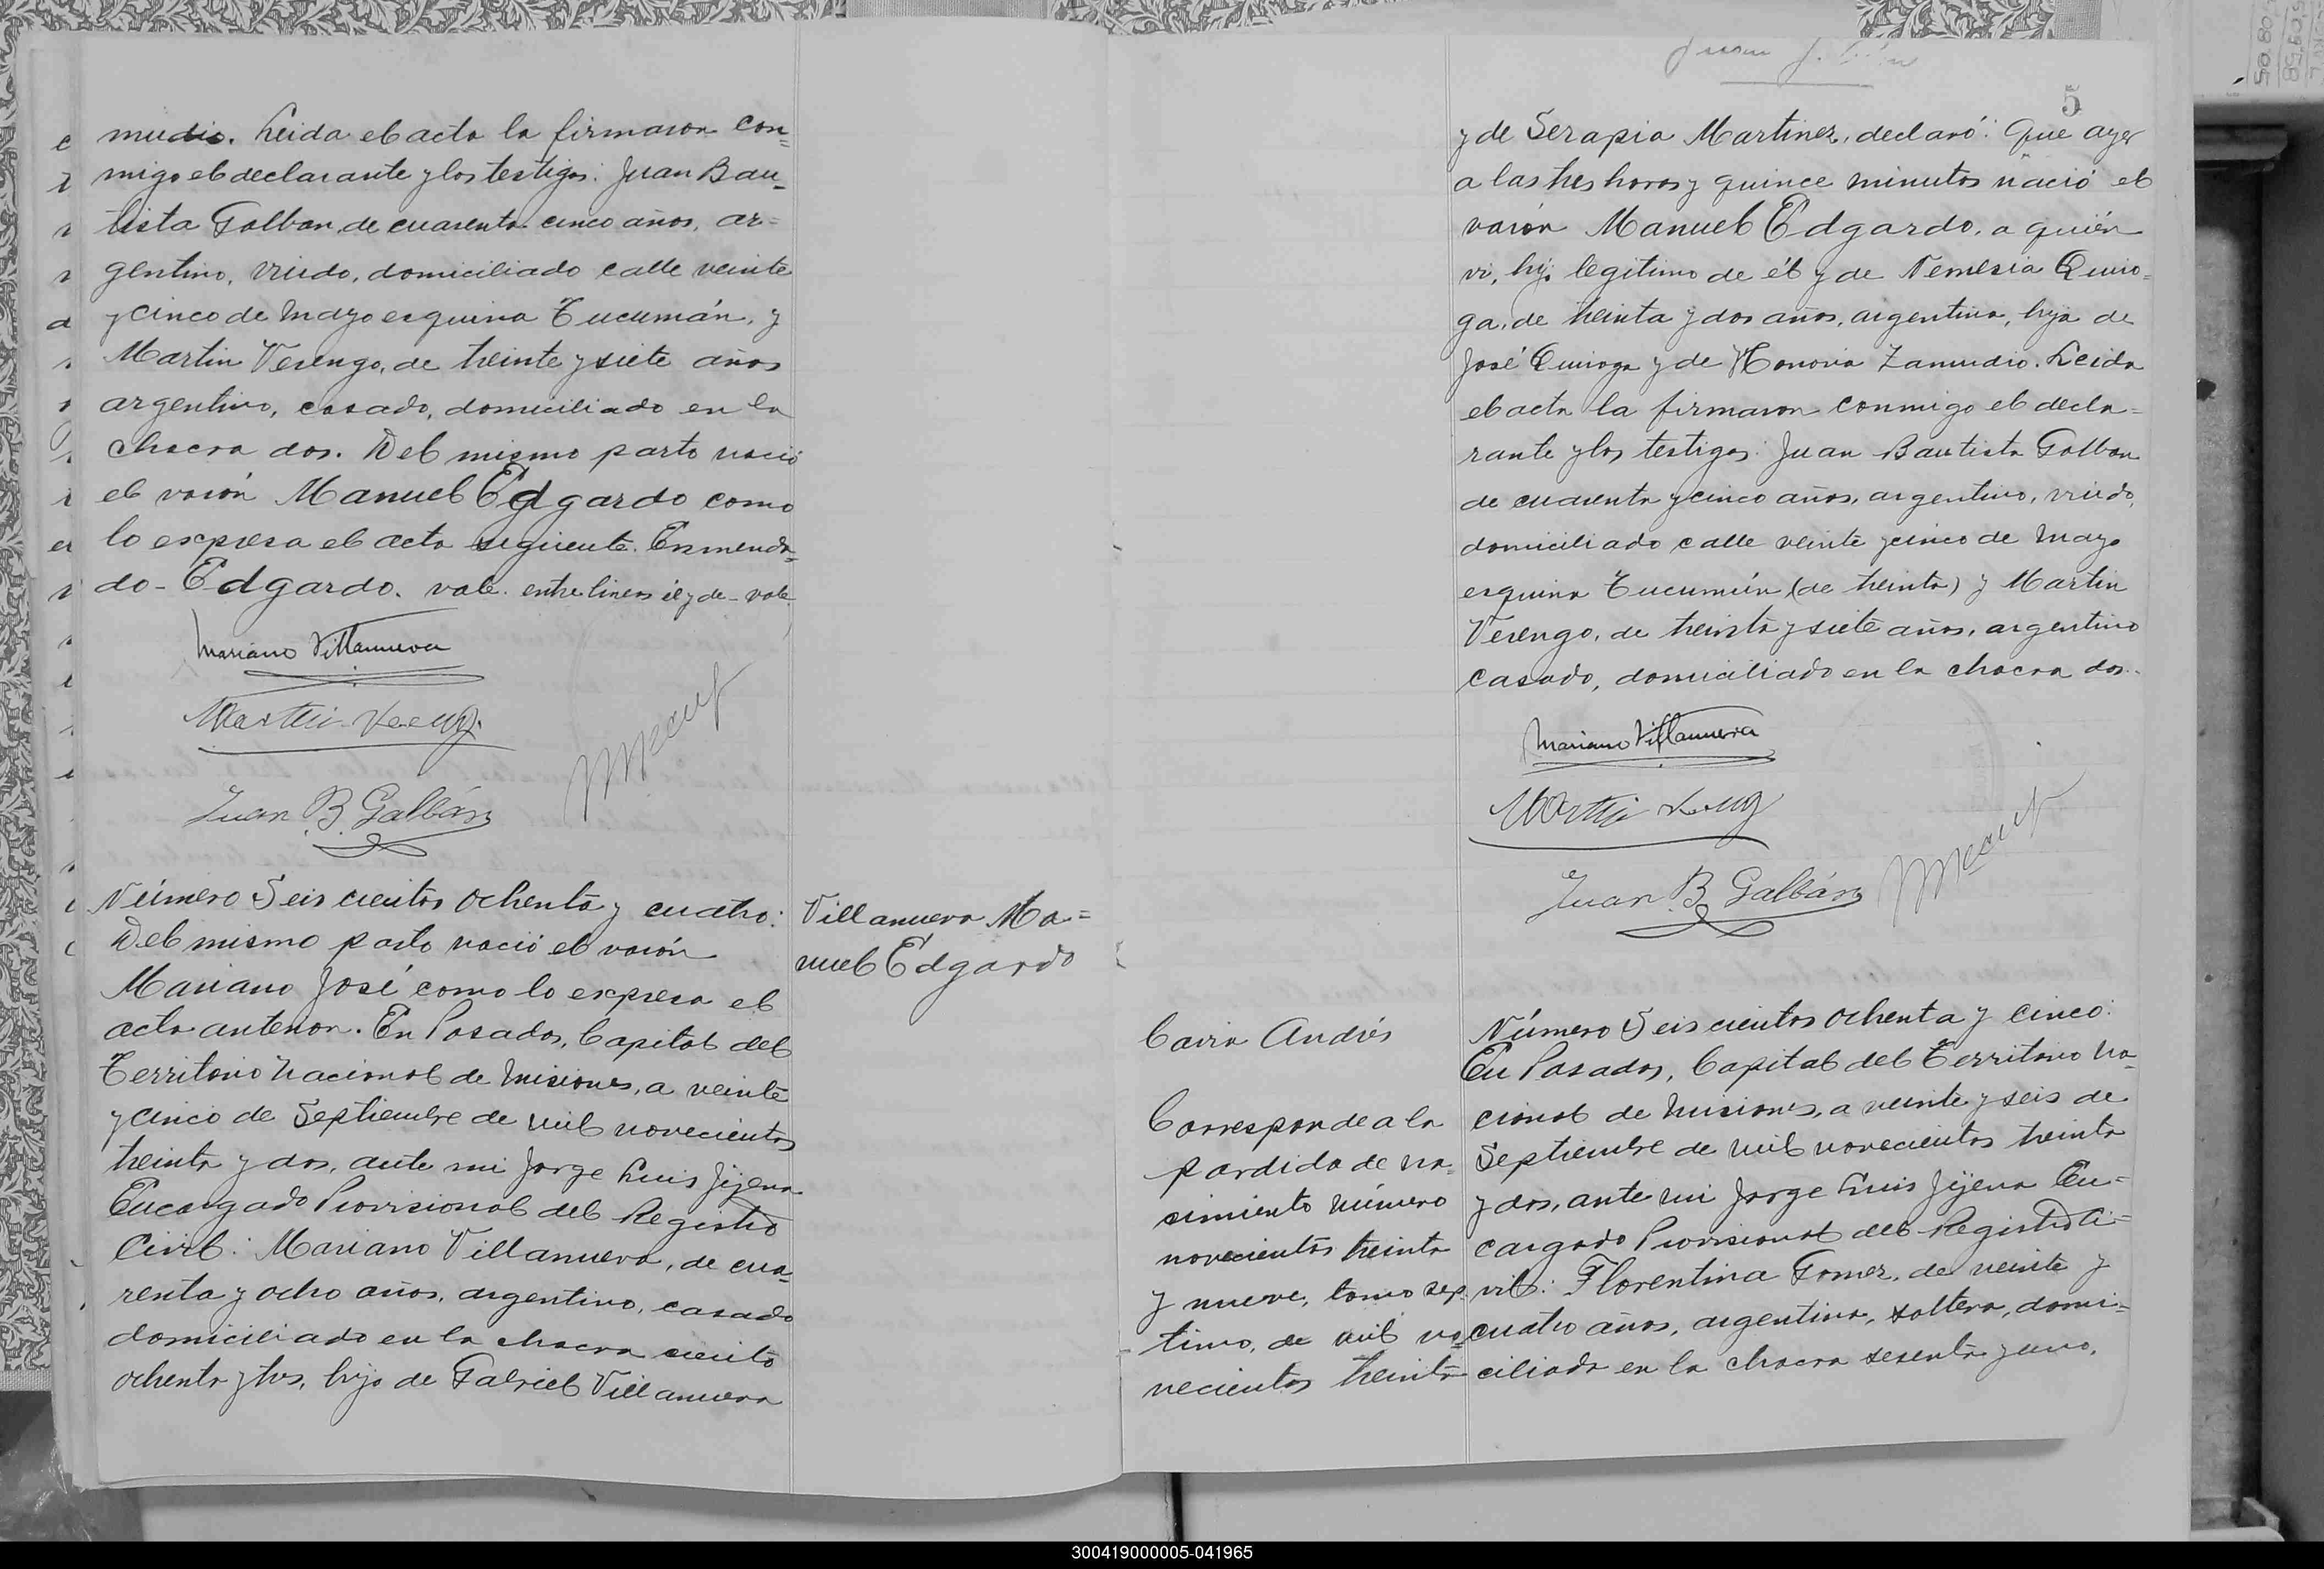 mudio. Leida el acta la firmaron con=
migo el declarante y los testigos: Juan Bau=
tista Galban, de cuarenta cinco años, ar=
gentino, viudo, domiciliado calle veinte
y cinco de Mayo esquina Tucumán, y
Martin Verengo, de treinte y siete años
argentino, casado, domiciliado en la
chacra dos. Del mismo parto nació
el varón Manuel Edgardo como
lo expresa el acta siguiente. Enmenda=
do - Edgardo. vale. entre lineas él y de - vale.
Mariano Villanueva
Juan B. Galbán
Número Seis cientos ochenta y cuatro:
Del mismo parto nació el varón
Mariano José como lo expresa el
acta anterior. En Posadas, Capital del
Territorio Nacional de Misiones, a veinte
y cinco de Septiembre de mil novecientos
treinta y dos, ante mi Jorge Luis Jijena
Encargado Provisional del Registro
Civil: Mariano Villanueva, de cua=
renta y ocho años, argentino, casado
domiciliado en la chacra ciento
ochenta y tres, hijo de Gabriel Villanueva
Villanueva Ma=
nuel Edgardo
5
y de Serapia Martinez, declaró: Que ayer
a las tres horas y quince minutos nació el
varón Manuel Edgardo, a quién
vi, hijo legitimo de él y de Nemesia Quiro=
ga, de treinta y dos años, argentina, hija de
José Quiroga y de Honoria Zamudio. Leida
el acta la firmaron conmigo el decla=
rante y los testigos: Juan Bautista Galban
de cuarenta y cinco años, argentino, viudo,
domiciliado calle veinte y cinco de Mayo
esquina Tucumán (de treinta) y Martin
Verengo, de treinta y siete años, argentino
casado, domiciliado en la chacra dos.
Mariano Villanueva
Juan B. Galbán
Cavia Andrés
Corresponde a la
pardida de na=
cimiento número
novecientos treinta
y nueve, tomo sep=
timo, de mil no=
vecientos treinta
Número Seis cientos ochenta y cinco:
En Posadas, Capital del Territorio Na=
cional de Misiones, a veinte y seis de
Septiembre de mil novecientos treinta
y dos, ante mi Jorge Luis Jijena En=
cargado Provisional del Registro Ci=
vil: Florentina Gomez, de veinte y
cuatro años, argentina, soltera, domi=
ciliada en la chacra sesenta y uno,
300419000005-041965